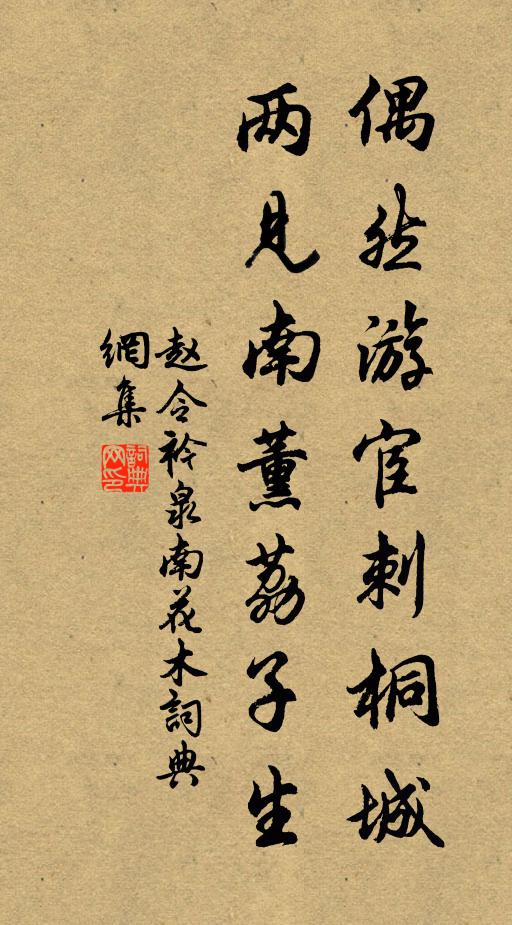 偶然游宦刺桐城
两见南薰荔子生
赵令衿泉南花木詞典
網集
詞典網印